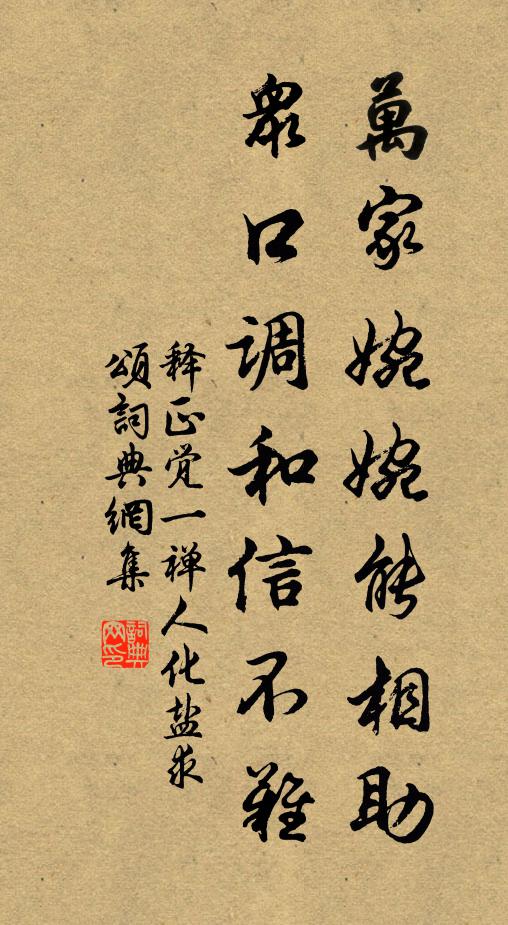 萬家婉婉能相助
衆口调和信不難
释正觉一禅人化盐求
頌詞典網集
詞典網印